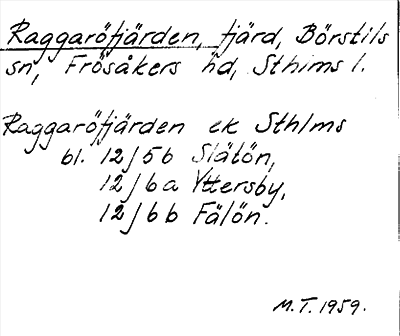 Raggaröfjärden, fjärd, Börstils
sn, Frösåkers hd, Sthlms l.
Raggaröfjärden ek Sthlms
bl. 12/5b Slätön,
12/6a Yttersby,
12/6b Fälön.
M.T. 1959.